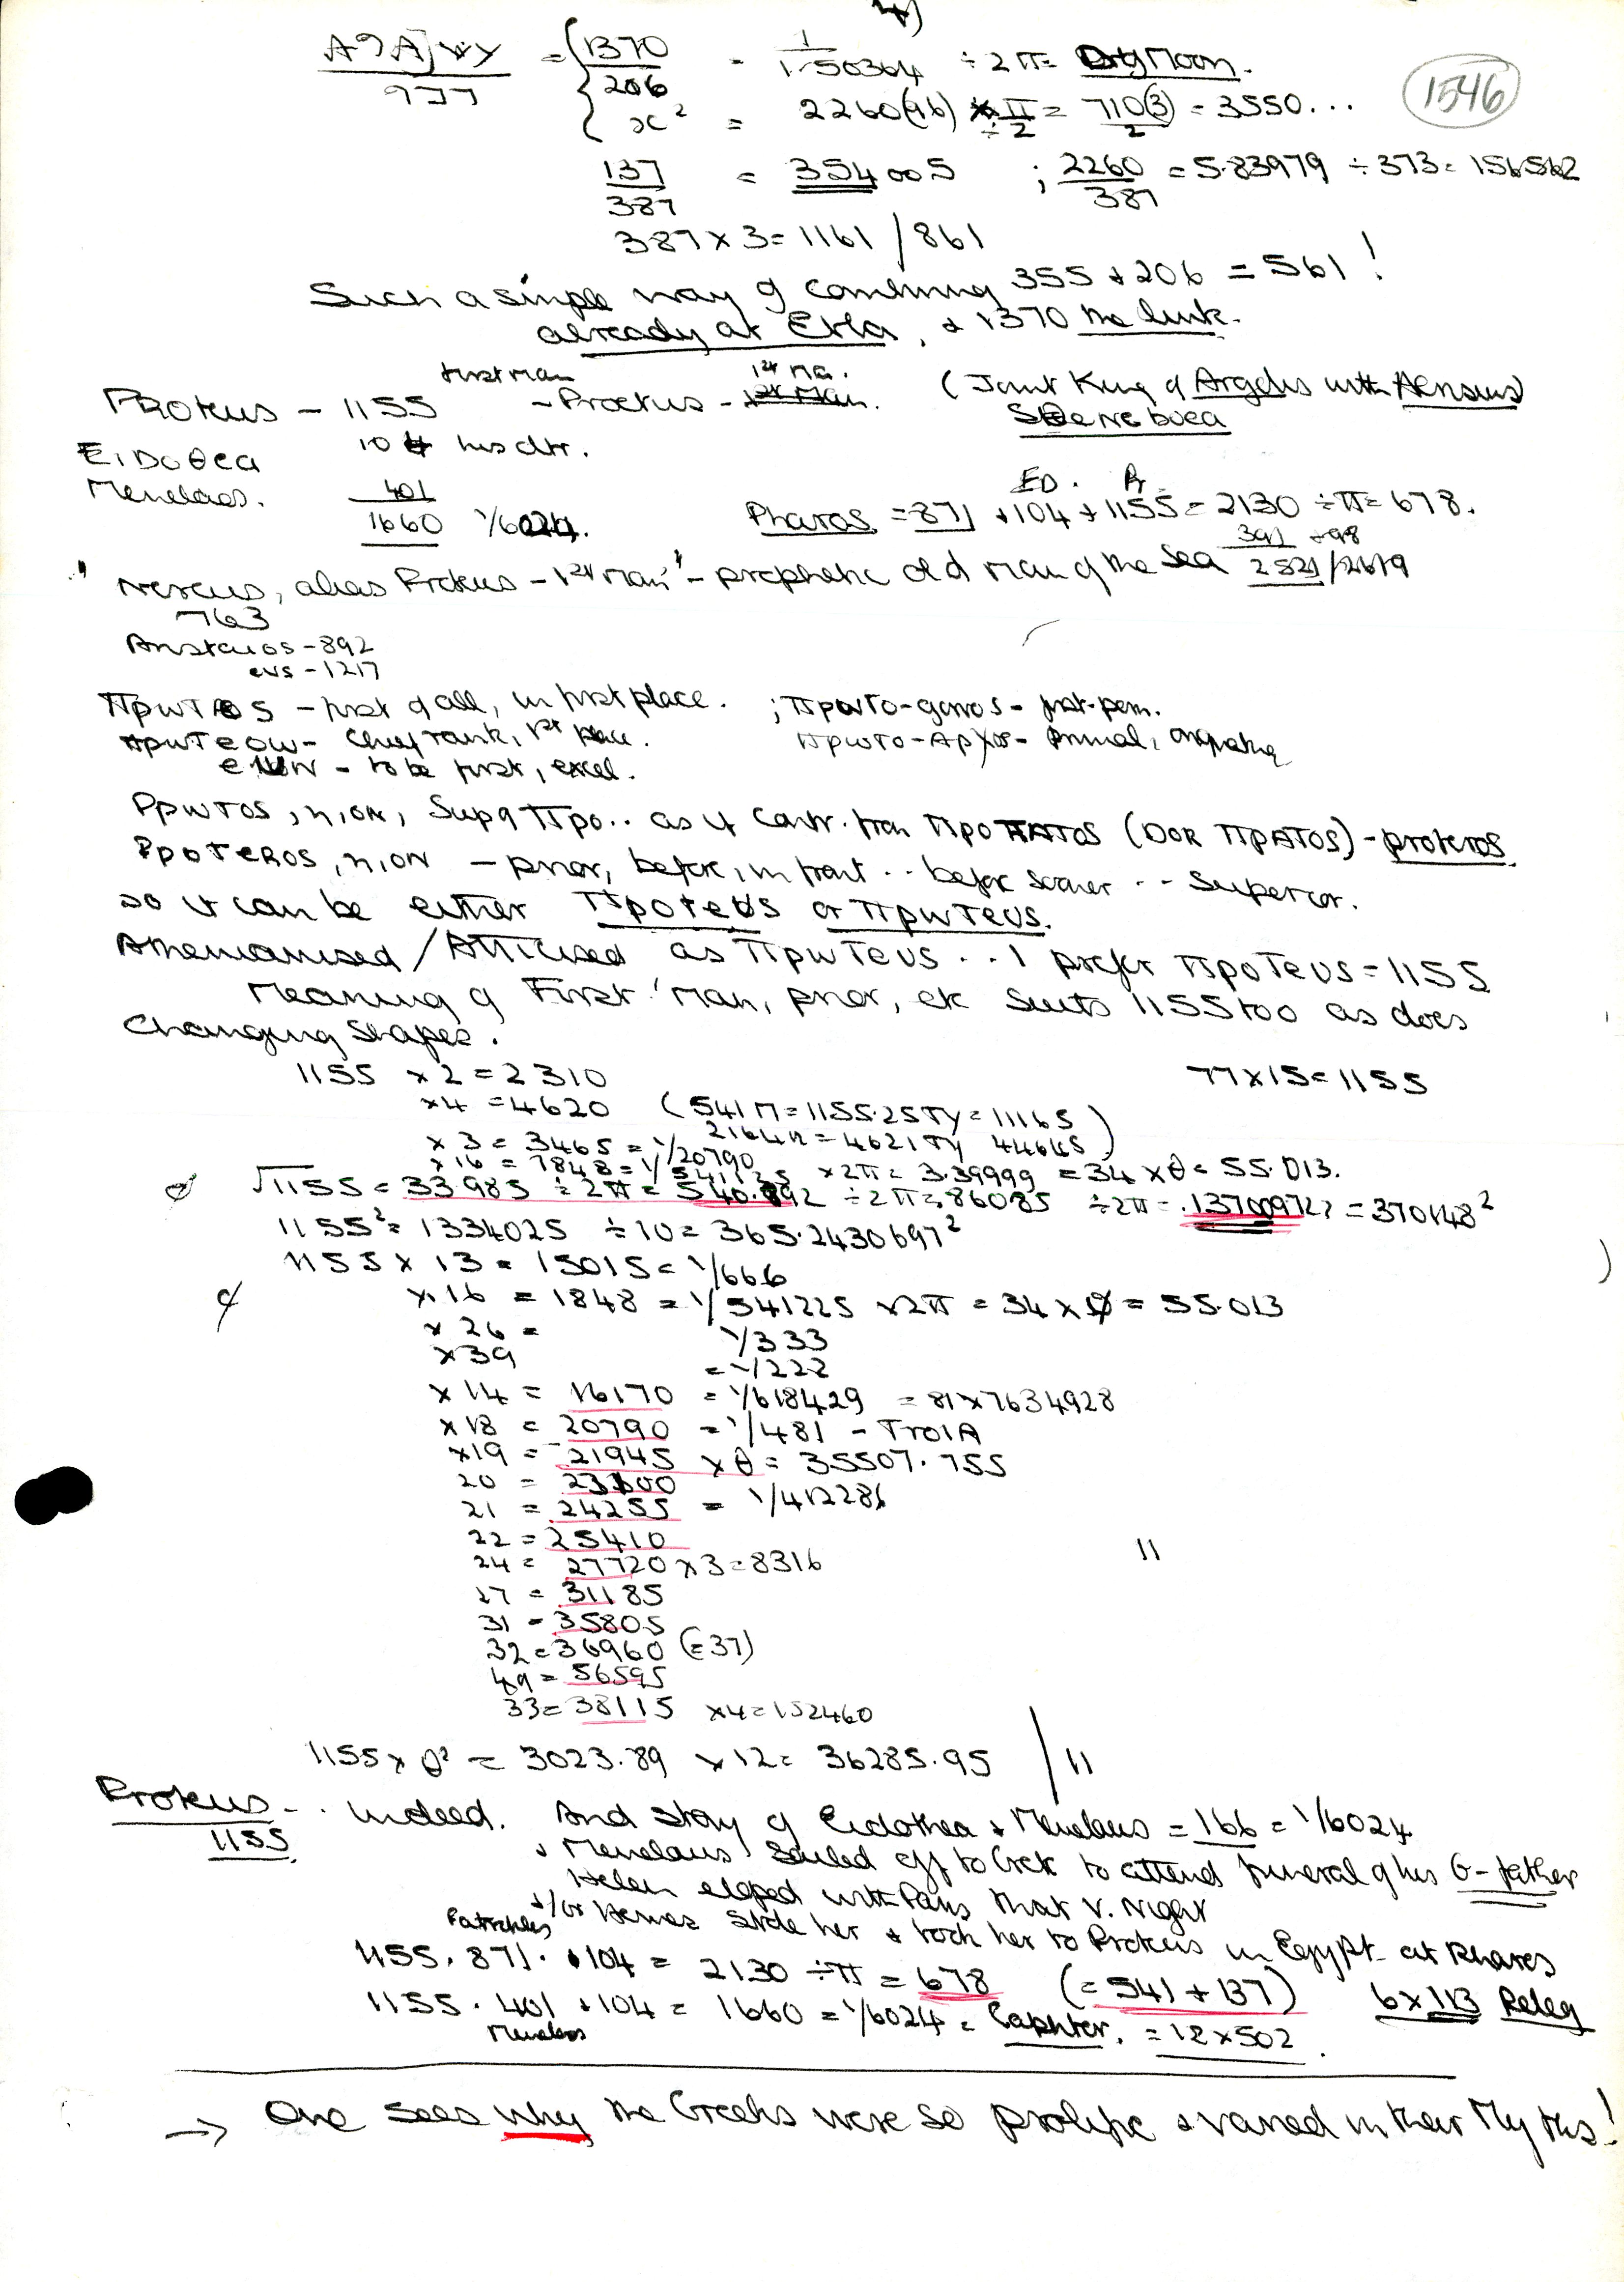 4)
= { 1370/206 = 1/150364 ÷ 2π = Moon.
1546
x² = 2260(96) π ÷ 2 = 710(3)/2 = 3550...
137/387 = 354005 ; 2260/387 = 5.83979 ÷ 373 = 156562
387 x 3 = 1161 / 861
Such a simple way of combining 355 + 206 = 561!
already at Ebla, + 1370 the link.
first man
1st Ma.
Proteus - 1155 - Proetus - (Joint King of Argolis with
Steneboea
EiDOθea 104 his dtr.
Menelaos. 401
1660 1/6024.
ED. Pr
Pharos = 871 + 104 + 1155 = 2130 ÷ π = 678.
391 +98
"Nereus, alias Proteus - 1st Man" - prophetic old man of the Sea 2521/2619
763
Aristaios - 892
eus - 1217
ΠpwTos - first of all, in first place. ; ΠpwTo-gonos -
ΠpwTeow - Chief rank, 1st place. ΠpwTo-Apχos - Primal,
- to be first, excel.
ΠpwTos, η, ON, Sup of Πpo.. as if contr. from ΠpoTATOS (DOR ΠpATOS) - proteros
ΠpoTeROS, η, ON - prior, before, in front .. before sooner .. Superior.
so it can be either ΠpoTeus or ΠpwTeus.
Athenianised / Atticised as ΠpwTeus... I prefer ΠpoTeus = 1155
Meaning of First Man, prior, etc suits 1155 too as does
Changing Shapes.
1155 x 2 = 2310 77 x 15 = 1155
x 4 = 4620 (541 M = 1155.25 Ty = 11165
2164 = 4621 Ty 44645)
x 3 = 3465 = 1/20790
x 16 = 1848 = 1/541125 x 2π = 3.39999 = 34 x θ = 55.013.
√1155 = 33.985 ÷ 2π = 540.892 ÷ 2π = 86085 ÷ 2π = .13700972 = 370148²
1155² = 1334025 ÷ 10 = 365.2430697²
1155 x 13 = 15015 = 1/666
x 16 = 1848 = 1/541225 x 2π = 34 x θ = 55.013
x 26 = 1/333
x 39 = 1/222
x 14 = 16170 = 1/618429 = 81 x 7634928
x 18 = 20790 = 1/481 - TroIA
x 19 = 21945 x θ = 35507.755
20 = 23100
21 = 24255 = 1/412286
22 = 25410
24 = 27720 x 3 = 8316
27 = 31185
31 = 35805
32 = 36960 (= 37)
49 = 56595
33 = 38115 x 4 = 152460
1155 x θ² = 3023.89 x 12 = 36285.95 / 11
Proteus - . Indeed. And Story of Eidothea + Menelaus = 166 = 1/6024
1155
+ Menelaus Sailed off to Crete to attend funeral of his G-father
Helen eloped with Paris that v. Night
+/or Hermes Stole her + took her to Proteus in Egypt at Pharos
1155. 871. + 104 = 2130 ÷ π = 678 (= 541 + 137) 6 x 113 Peleg
1155. 401 + 104 = 1660 = 1/6024 = Caphtor. = 12 x 502.
Menelaos
→ One sees why the Greeks were so prolific & varied in their Myths!